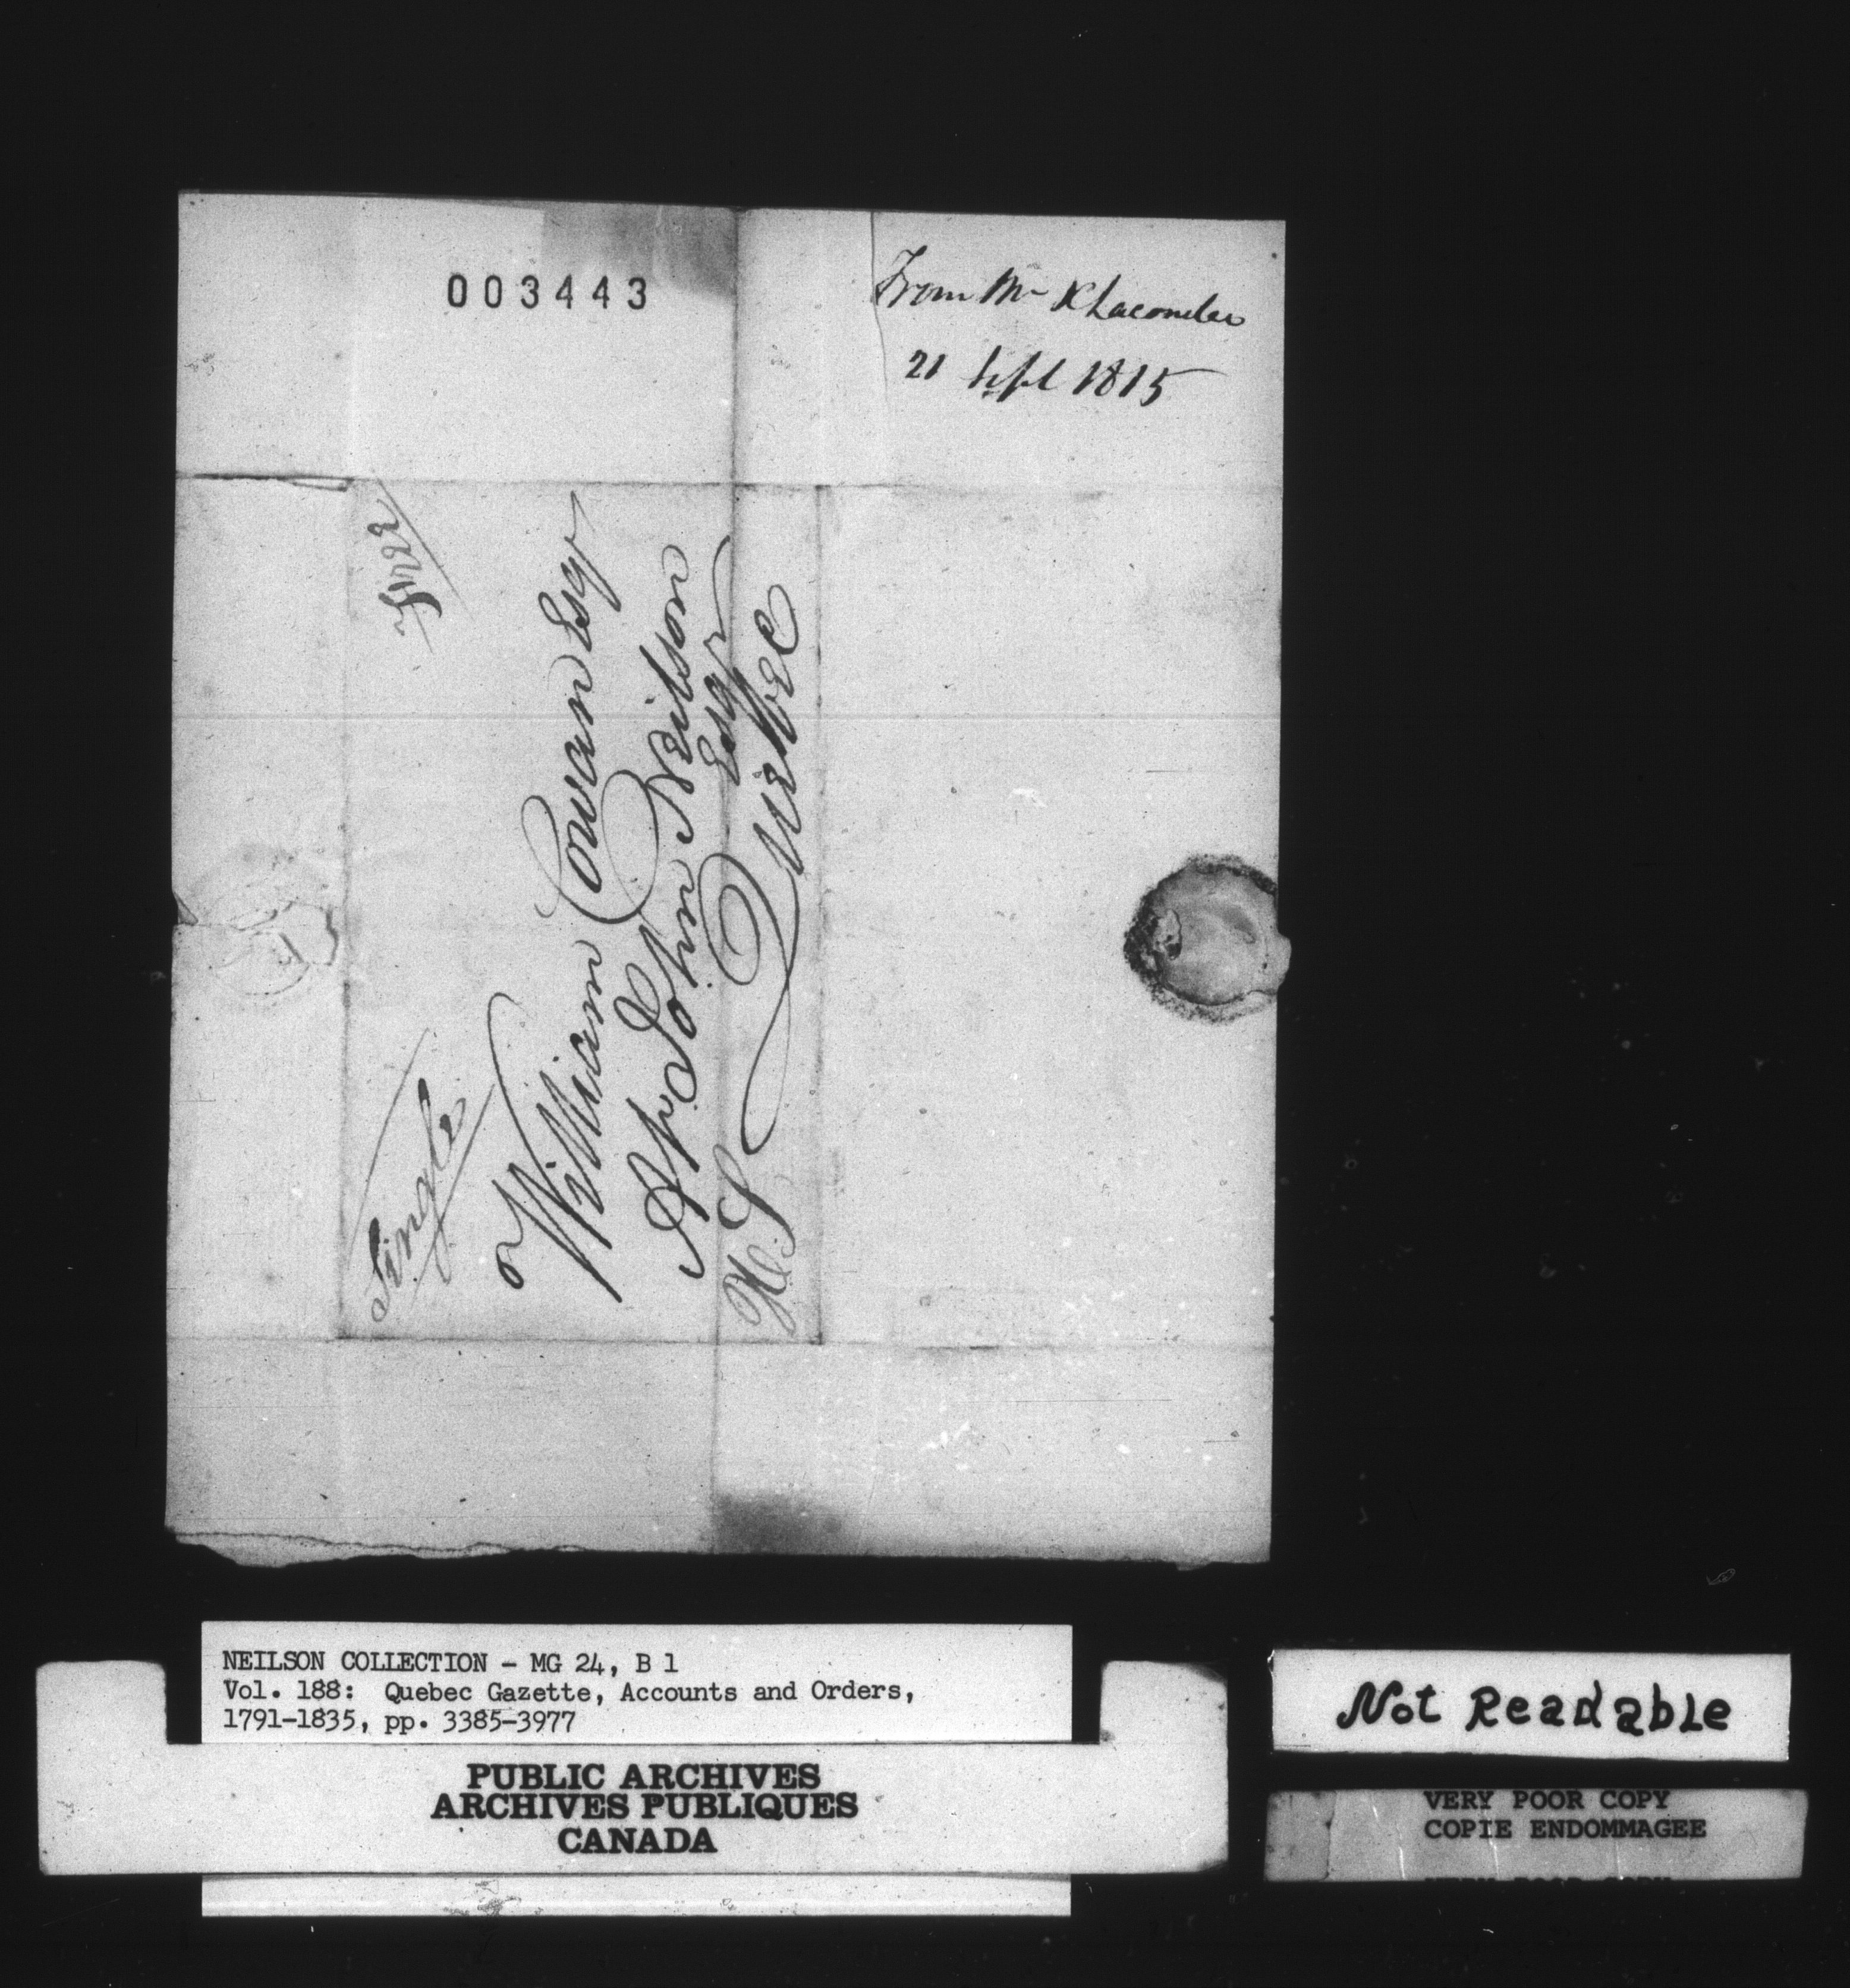 003443
From Mr K Lacombe
21 Sept 1815
Single
William Cowan Esqr
John Neilson
Esqr
Quebec
NEILSON COLLECTION - MG 24, B 1
Vol. 188: Quebec Gazette, Accounts and Orders,
1791-1835, pp. 3385-3977
PUBLIC ARCHIVES
ARCHIVES PUBLIQUES
CANADA
Not Readable
VERY POOR COPY
COPIE ENDOMMAGEE